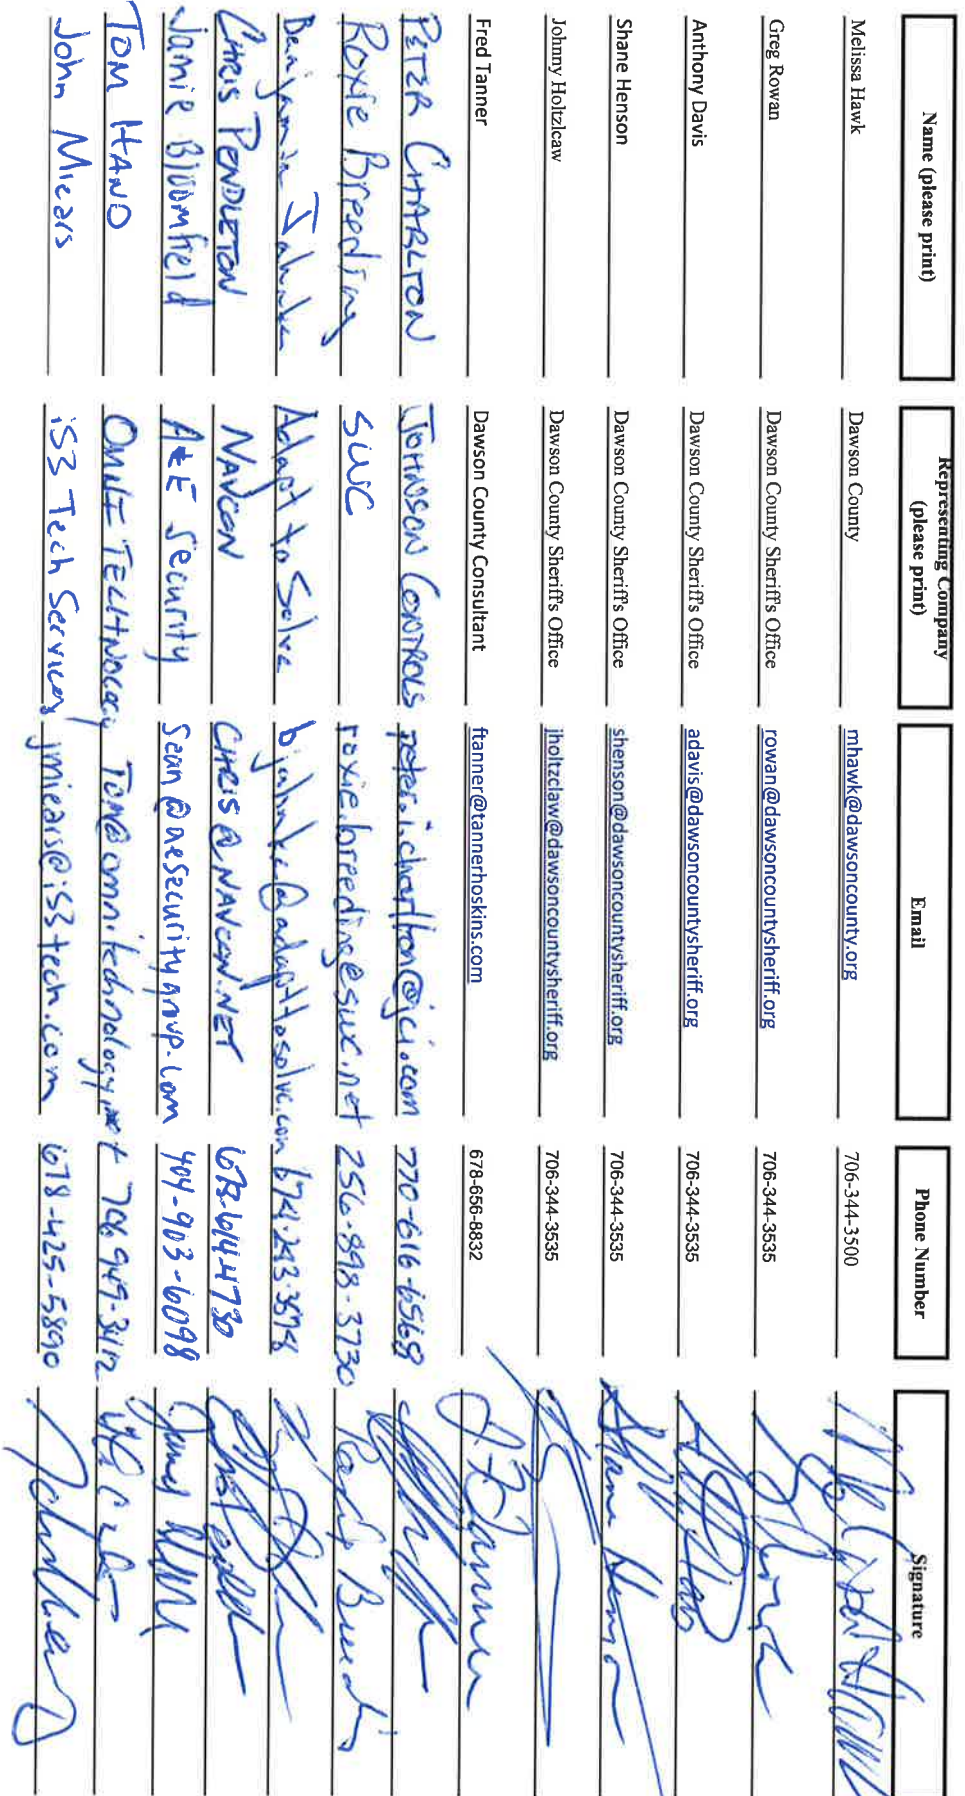 Name (please print) Representing Company (please print) Email Phone Number Signature
Melissa Hawk Dawson County mhawk@dawsoncounty.org 706-344-3500
Greg Rowan Dawson County Sheriff's Office rowan@dawsoncountysheriff.org 706-344-3535
Anthony Davis Dawson County Sheriff's Office adavis@dawsoncountysheriff.org 706-344-3535
Shane Henson Dawson County Sheriff's Office shenson@dawsoncountysheriff.org 706-344-3535 Shane Henson
Johnny Holtzlcaw Dawson County Sheriff's Office jholtzclaw@dawsoncountysheriff.org 706-344-3535
Fred Tanner Dawson County Consultant ftanner@tannerhoskins.com 678-656-8832 Tanner
PETER CHARLTON JOHNSON CONTROLS peter.i.charlton@jci.com 770-616-6568
Roxie Breeding SWC roxie.breeding@swc.net 256-898-3730 Roxie Breeding
Benjamin Jahnke Adapt to Solve bjahnke@adapttosolve.com
CHRIS PENDLETON NAVCON CHRIS@NAVCON.NET 678-614-4730
Jamie Bloomfield A&E Security Sean@aesecuritygroup.com 404-903-6098
TOM HAND OMNI TECHNOLOGY TOM@omnitechnology.net 706 949-3412
John Miears iS3 Tech Services jmiears@is3tech.com 678-425-5890